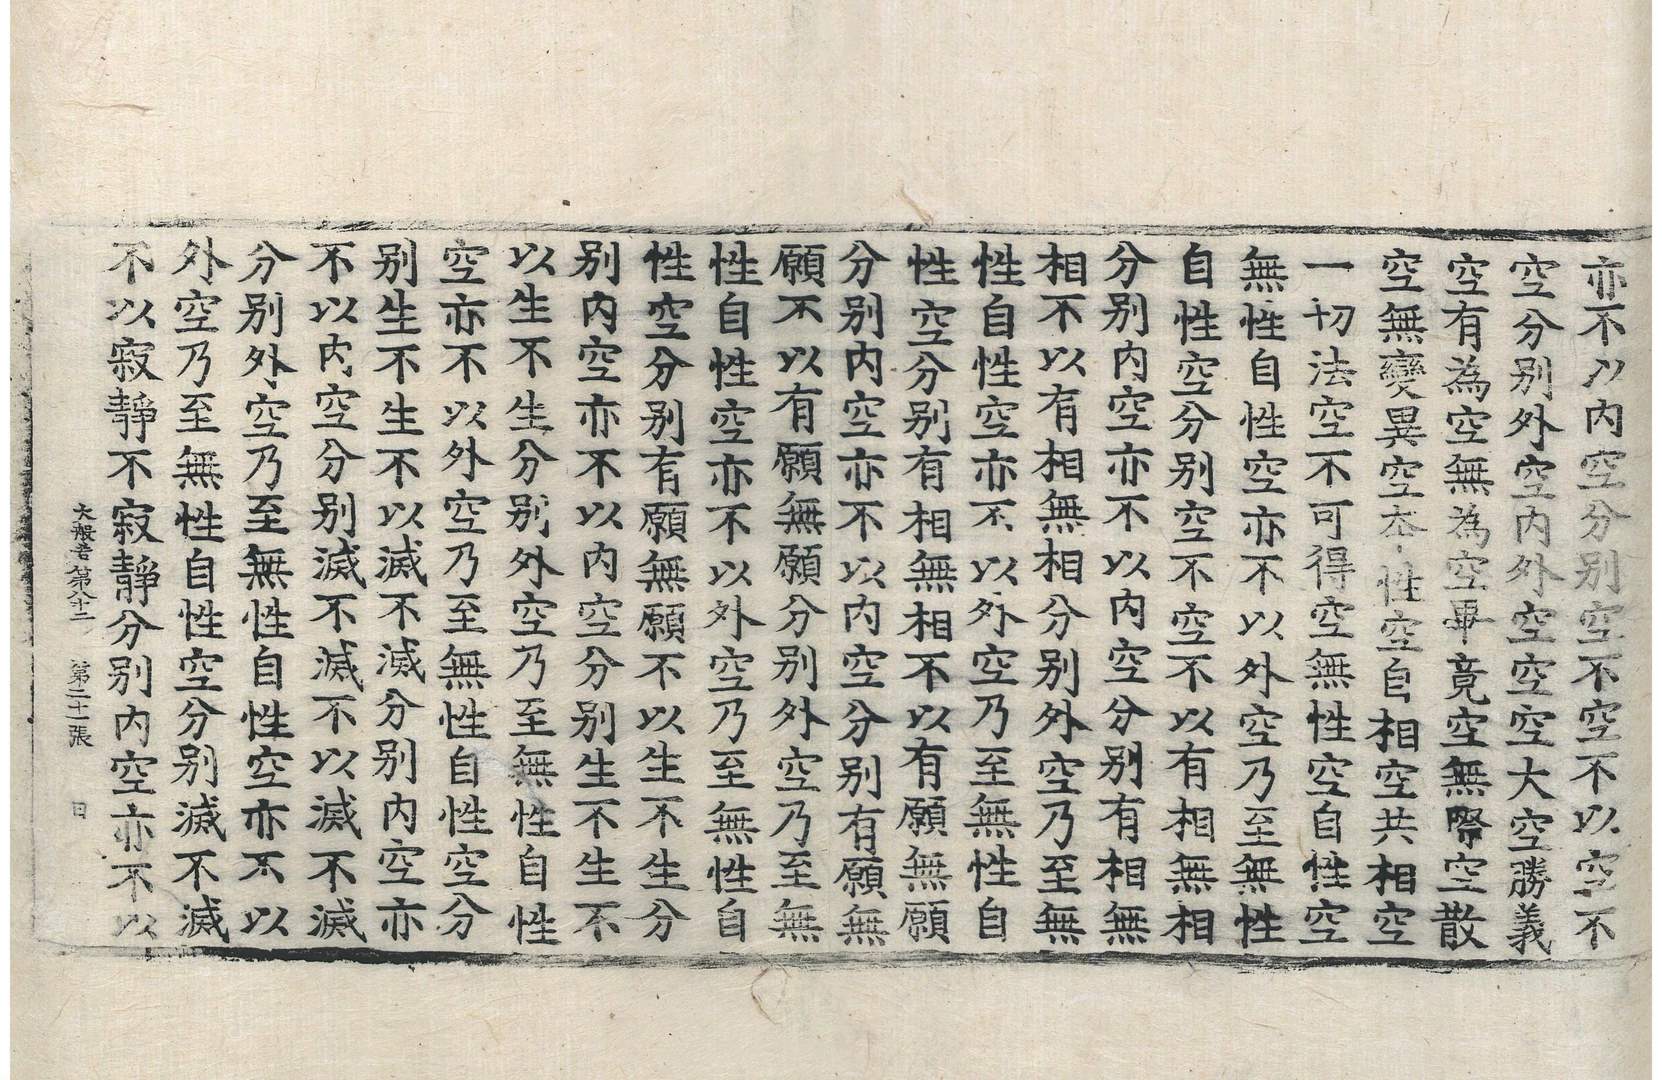 亦不以内空分别空不空不以空不
空分别外空内外空空空大空勝義
空有為空無為空畢竟空無際空散
空無變異空本性空自相空共相空
一切法空不可得空無性空自性空
無性自性空亦不以外空乃至無性
自性空分别空不空不以有相無相
分别内空亦不以内空分别有相無
相不以有相無相分别外空乃至無
性自性空亦不以外空乃至無性自
性空分别有相無相不以有願無願
分别内空亦不以内空分别有願無
願不以有願無願分别外空乃至無
性自性空亦不以外空乃至無性自
性空分别有願無願不以生不生分
别内空亦不以内空分别生不生不
以生不生分别外空乃至無性自性
空亦不以外空乃至無性自性空分
别生不生不以滅不滅分别内空亦
不以内空分别滅不滅不以滅不滅
分别外空乃至無性自性空亦不以
外空乃至無性自性空分别滅不滅
不以寂靜不寂靜分别内空亦不以
大般若第八十二 第二十一張 日